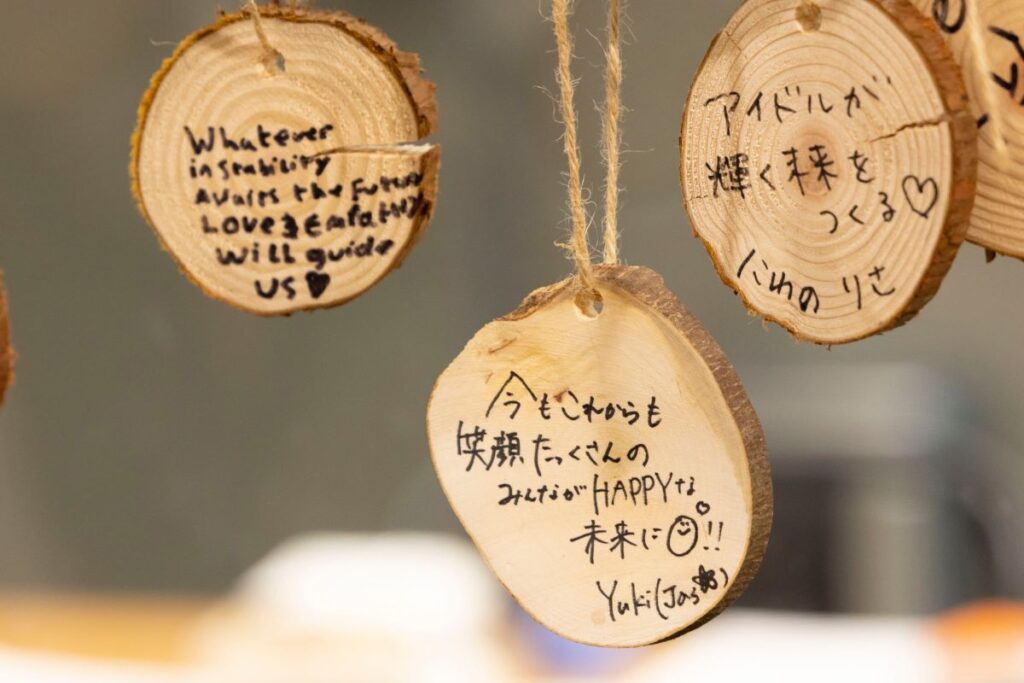 Whatever
instability
awaits the Future
Love & Empathy
will guide
us ♥
今もこれからも
笑顔たっくさんの
みんながHAPPYな
未来に!!
Yuki(Jas)
アイドルが
輝く未来を
つくる♡
にわの りさ